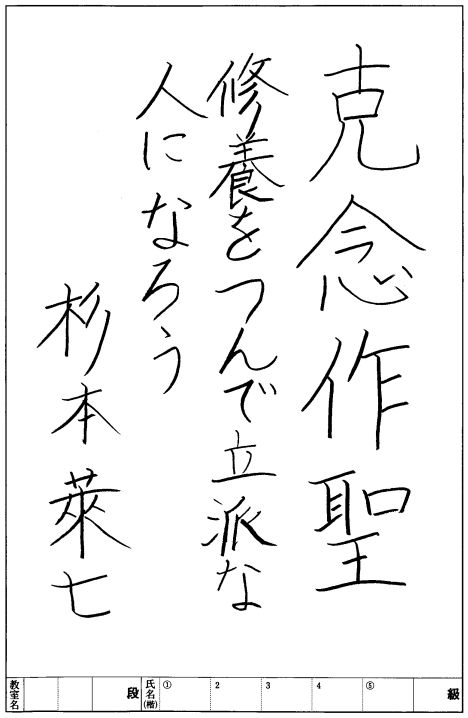 克念作聖
修養をつんで立派な
人になろう
杉本萊七
教室名
段
氏名(楷)
①
2
3
4
⑤
級